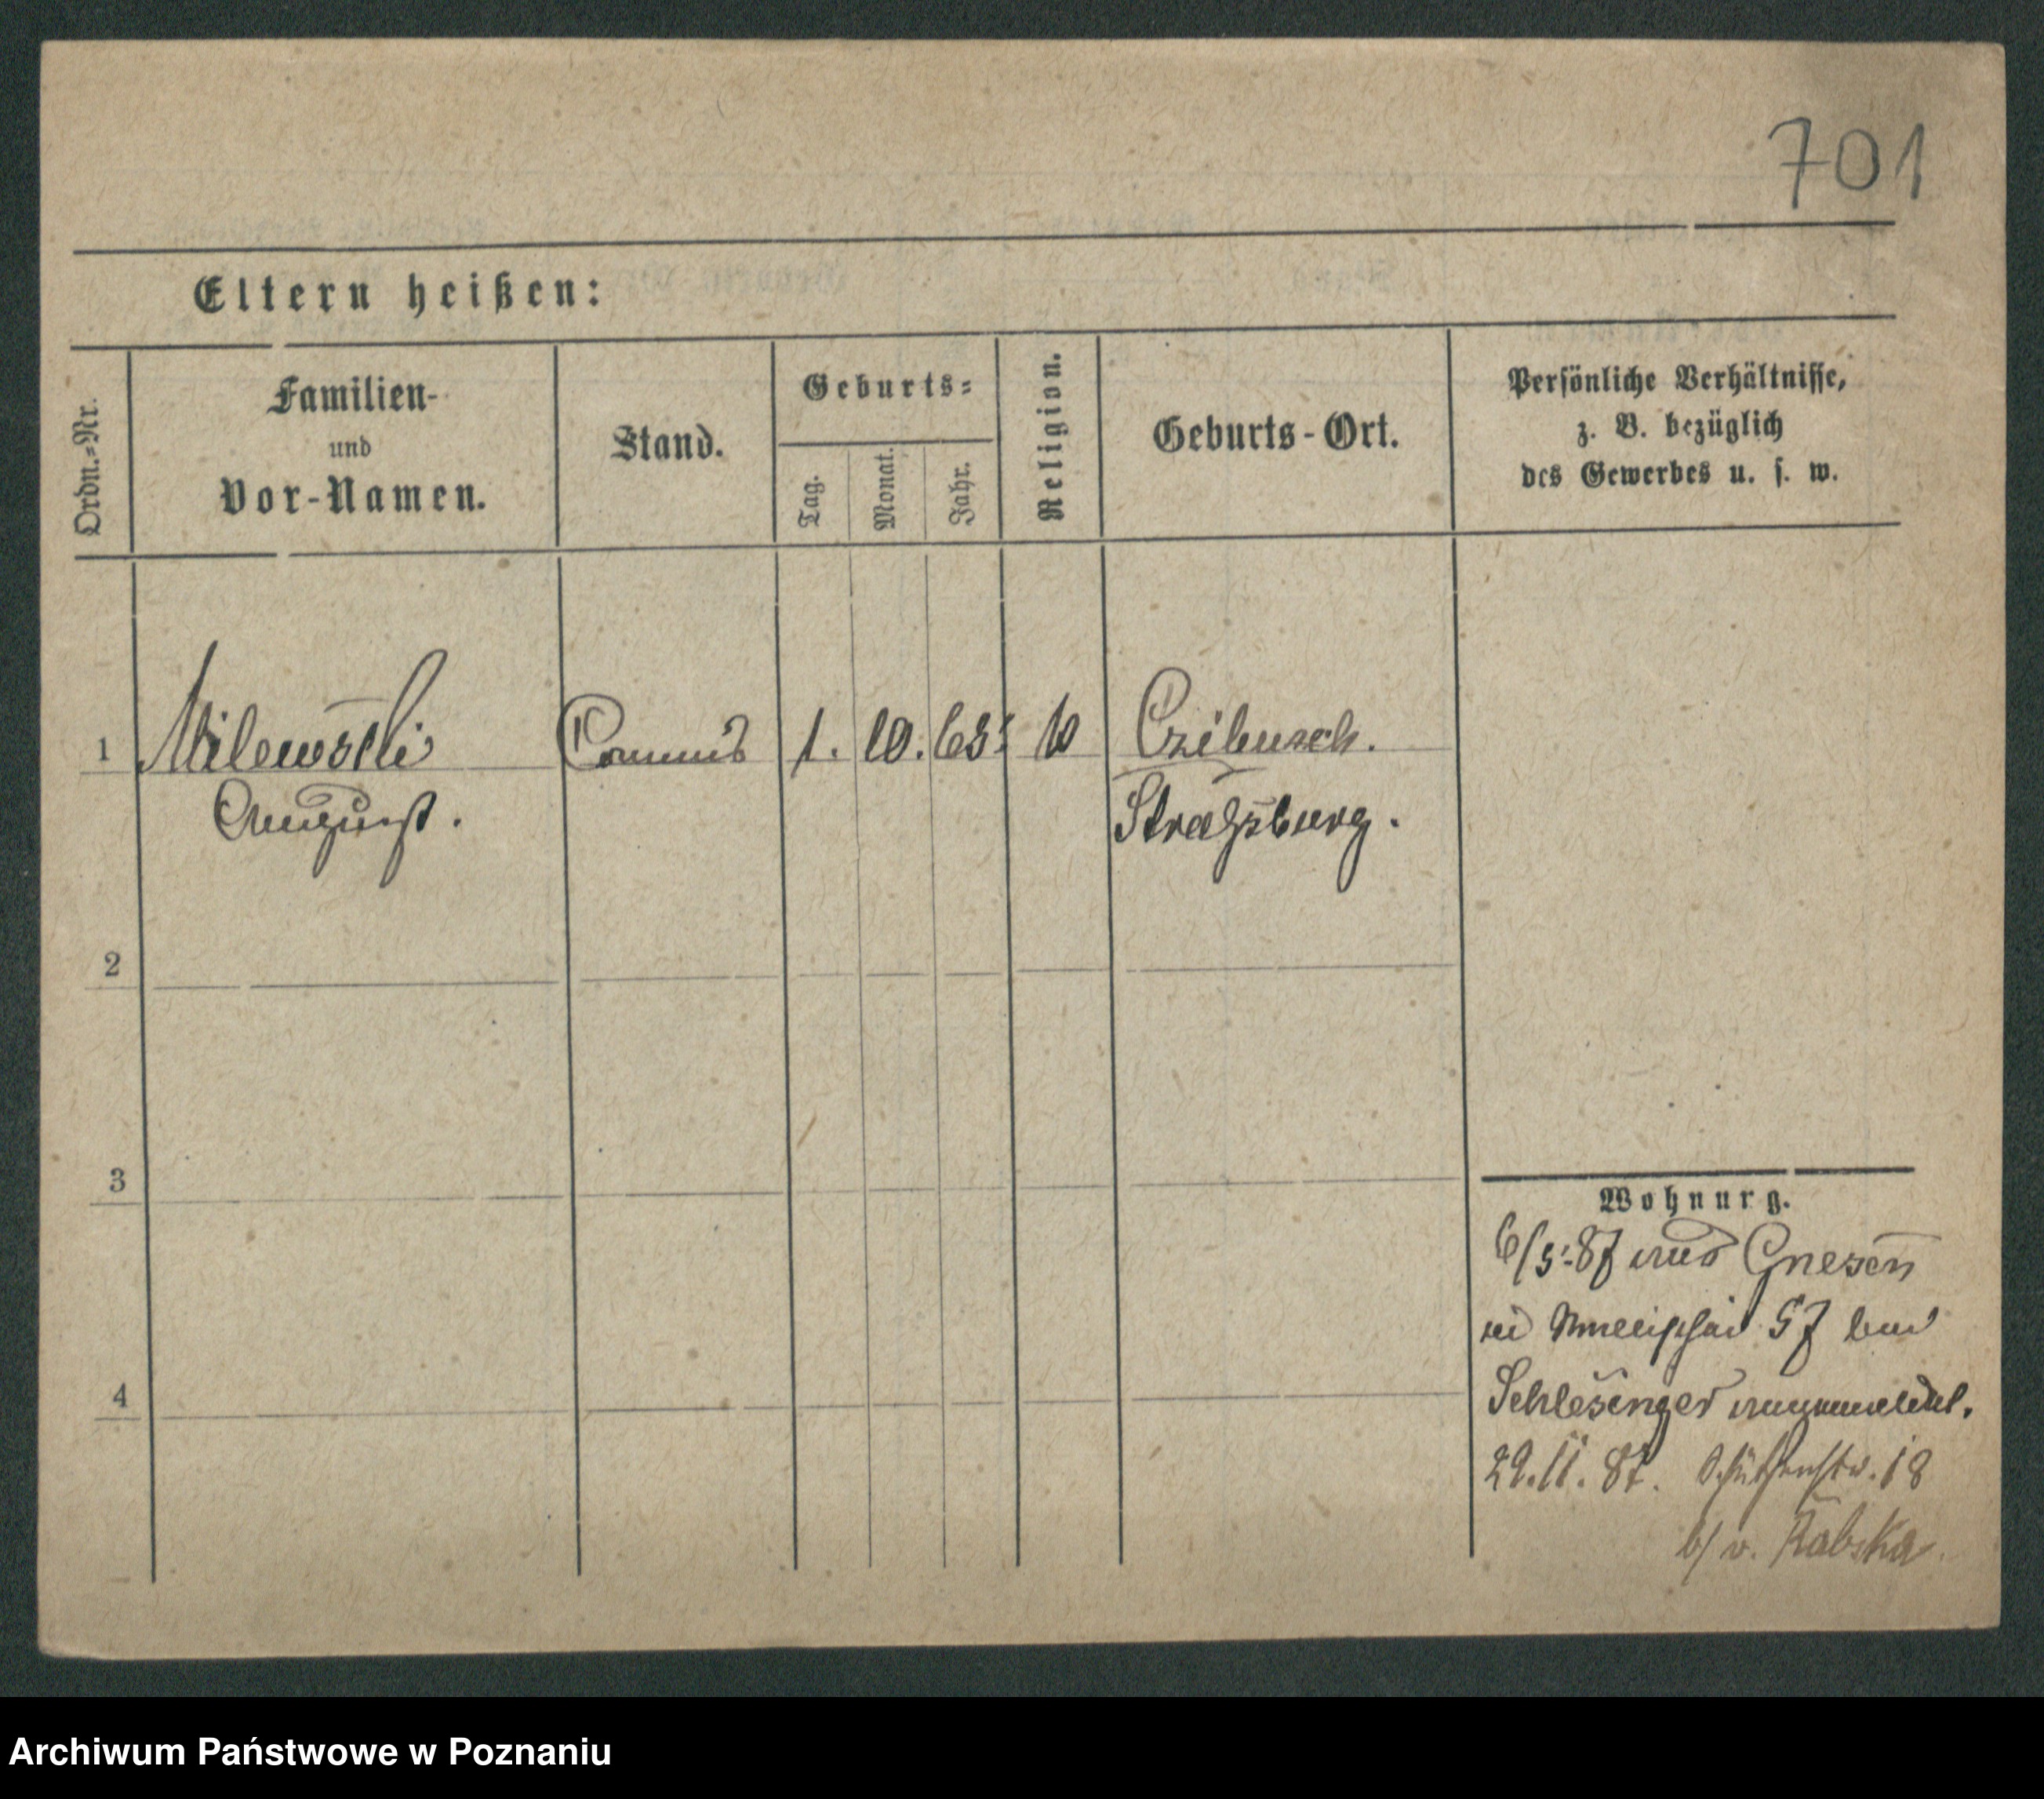 701
Eltern heißen:
Ordn.-Nr.
Familien-
und
Vor-Namen.
Stand.
Geburts-
Tag.
Monat.
Jahr.
Religion.
Geburts-Ort.
Persönliche Verhältnisse,
z. B. bezüglich
des Gewerbes u. s. w.
1 Milewski Commis 1. 10. 65 Czibursch.
August. Straßburg.
2
3
4
Wohnurg.
6/5.87 aus Gnesen
57 bei
Schlesinger angemeldet.
29.11.87. Schützenstr. 18
b/ v. Rabska.
Archiwum Państwowe w Poznaniu